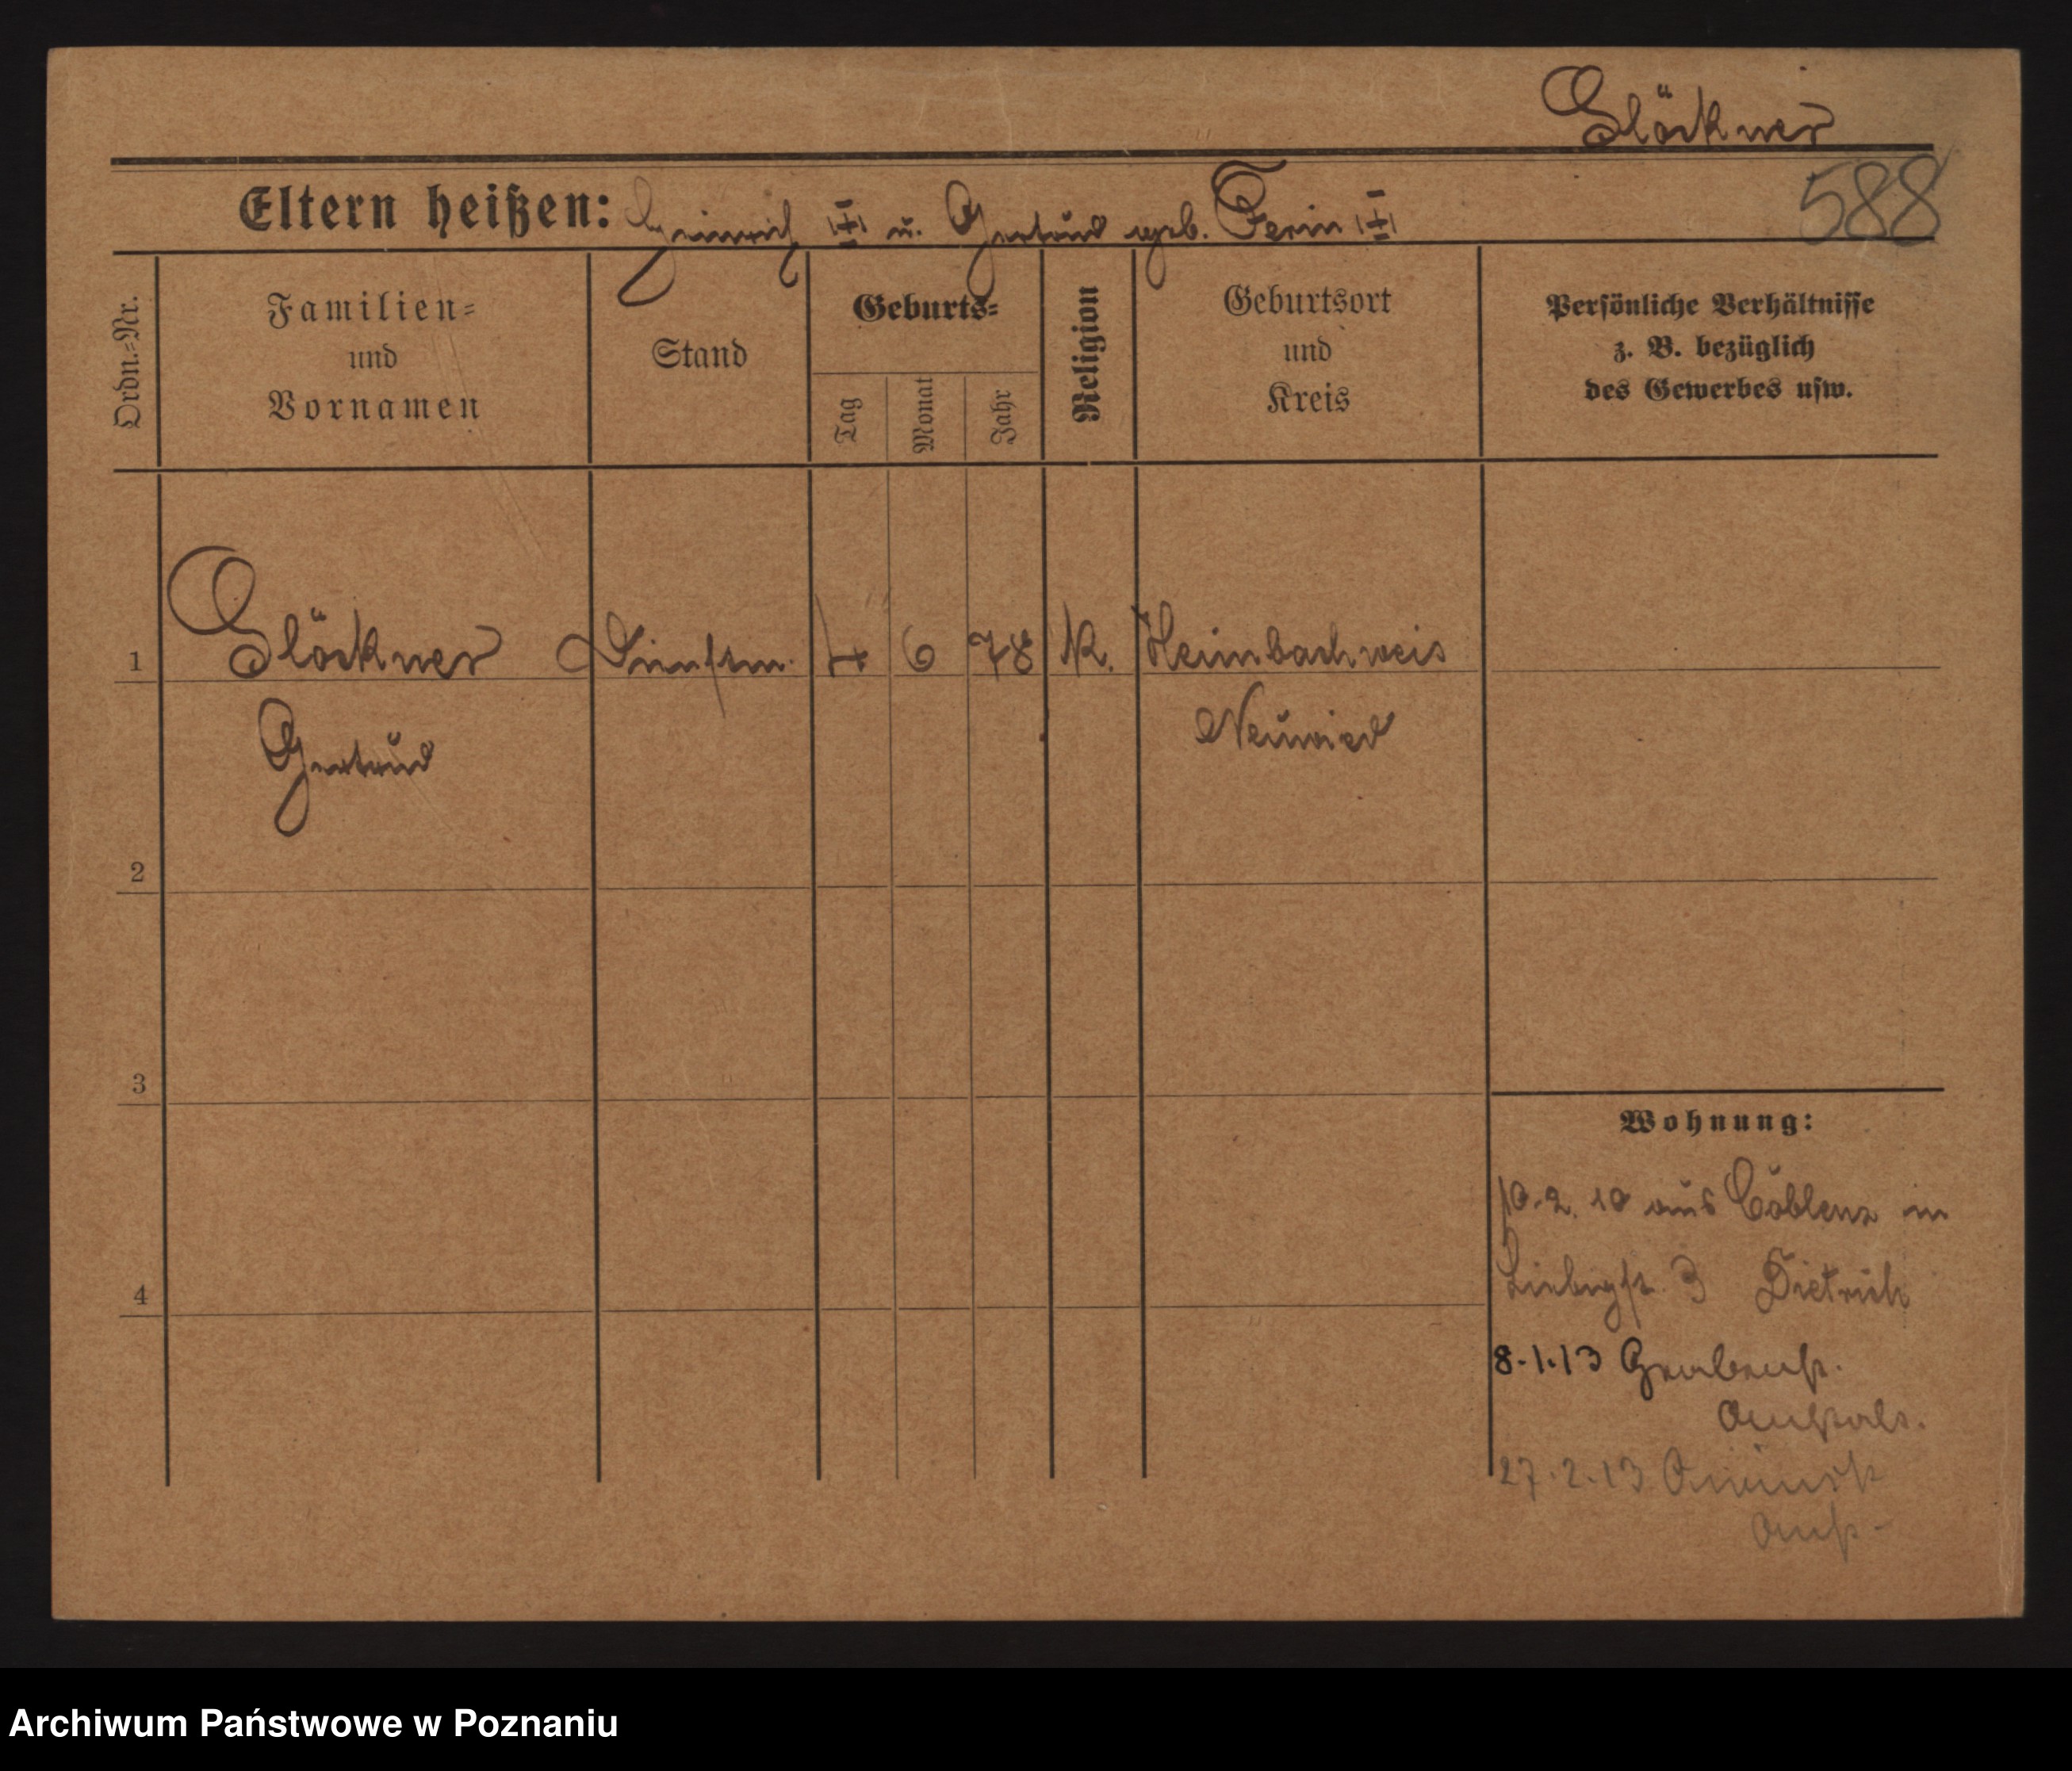 Glöckner
588
Eltern heißen: Heinrich u. Gertrud geb. Ferin
Ordn.-Nr.
Familien- und Vornamen
Stand
Geburts-
Tag
Monat
Jahr
Religion
Geburtsort und Kreis
Persönliche Verhältnisse
z. B. bezüglich
des Gewerbes usw.
1 Glöckner 4 6 78 K. Heimbachweis
Gertrud Neuwied
2
3
4
Wohnung:
10.2.10 aus Coblenz in
3 Dietrich
8.1.13 Grabenst.
27.2.13
Archiwum Państwowe w Poznaniu